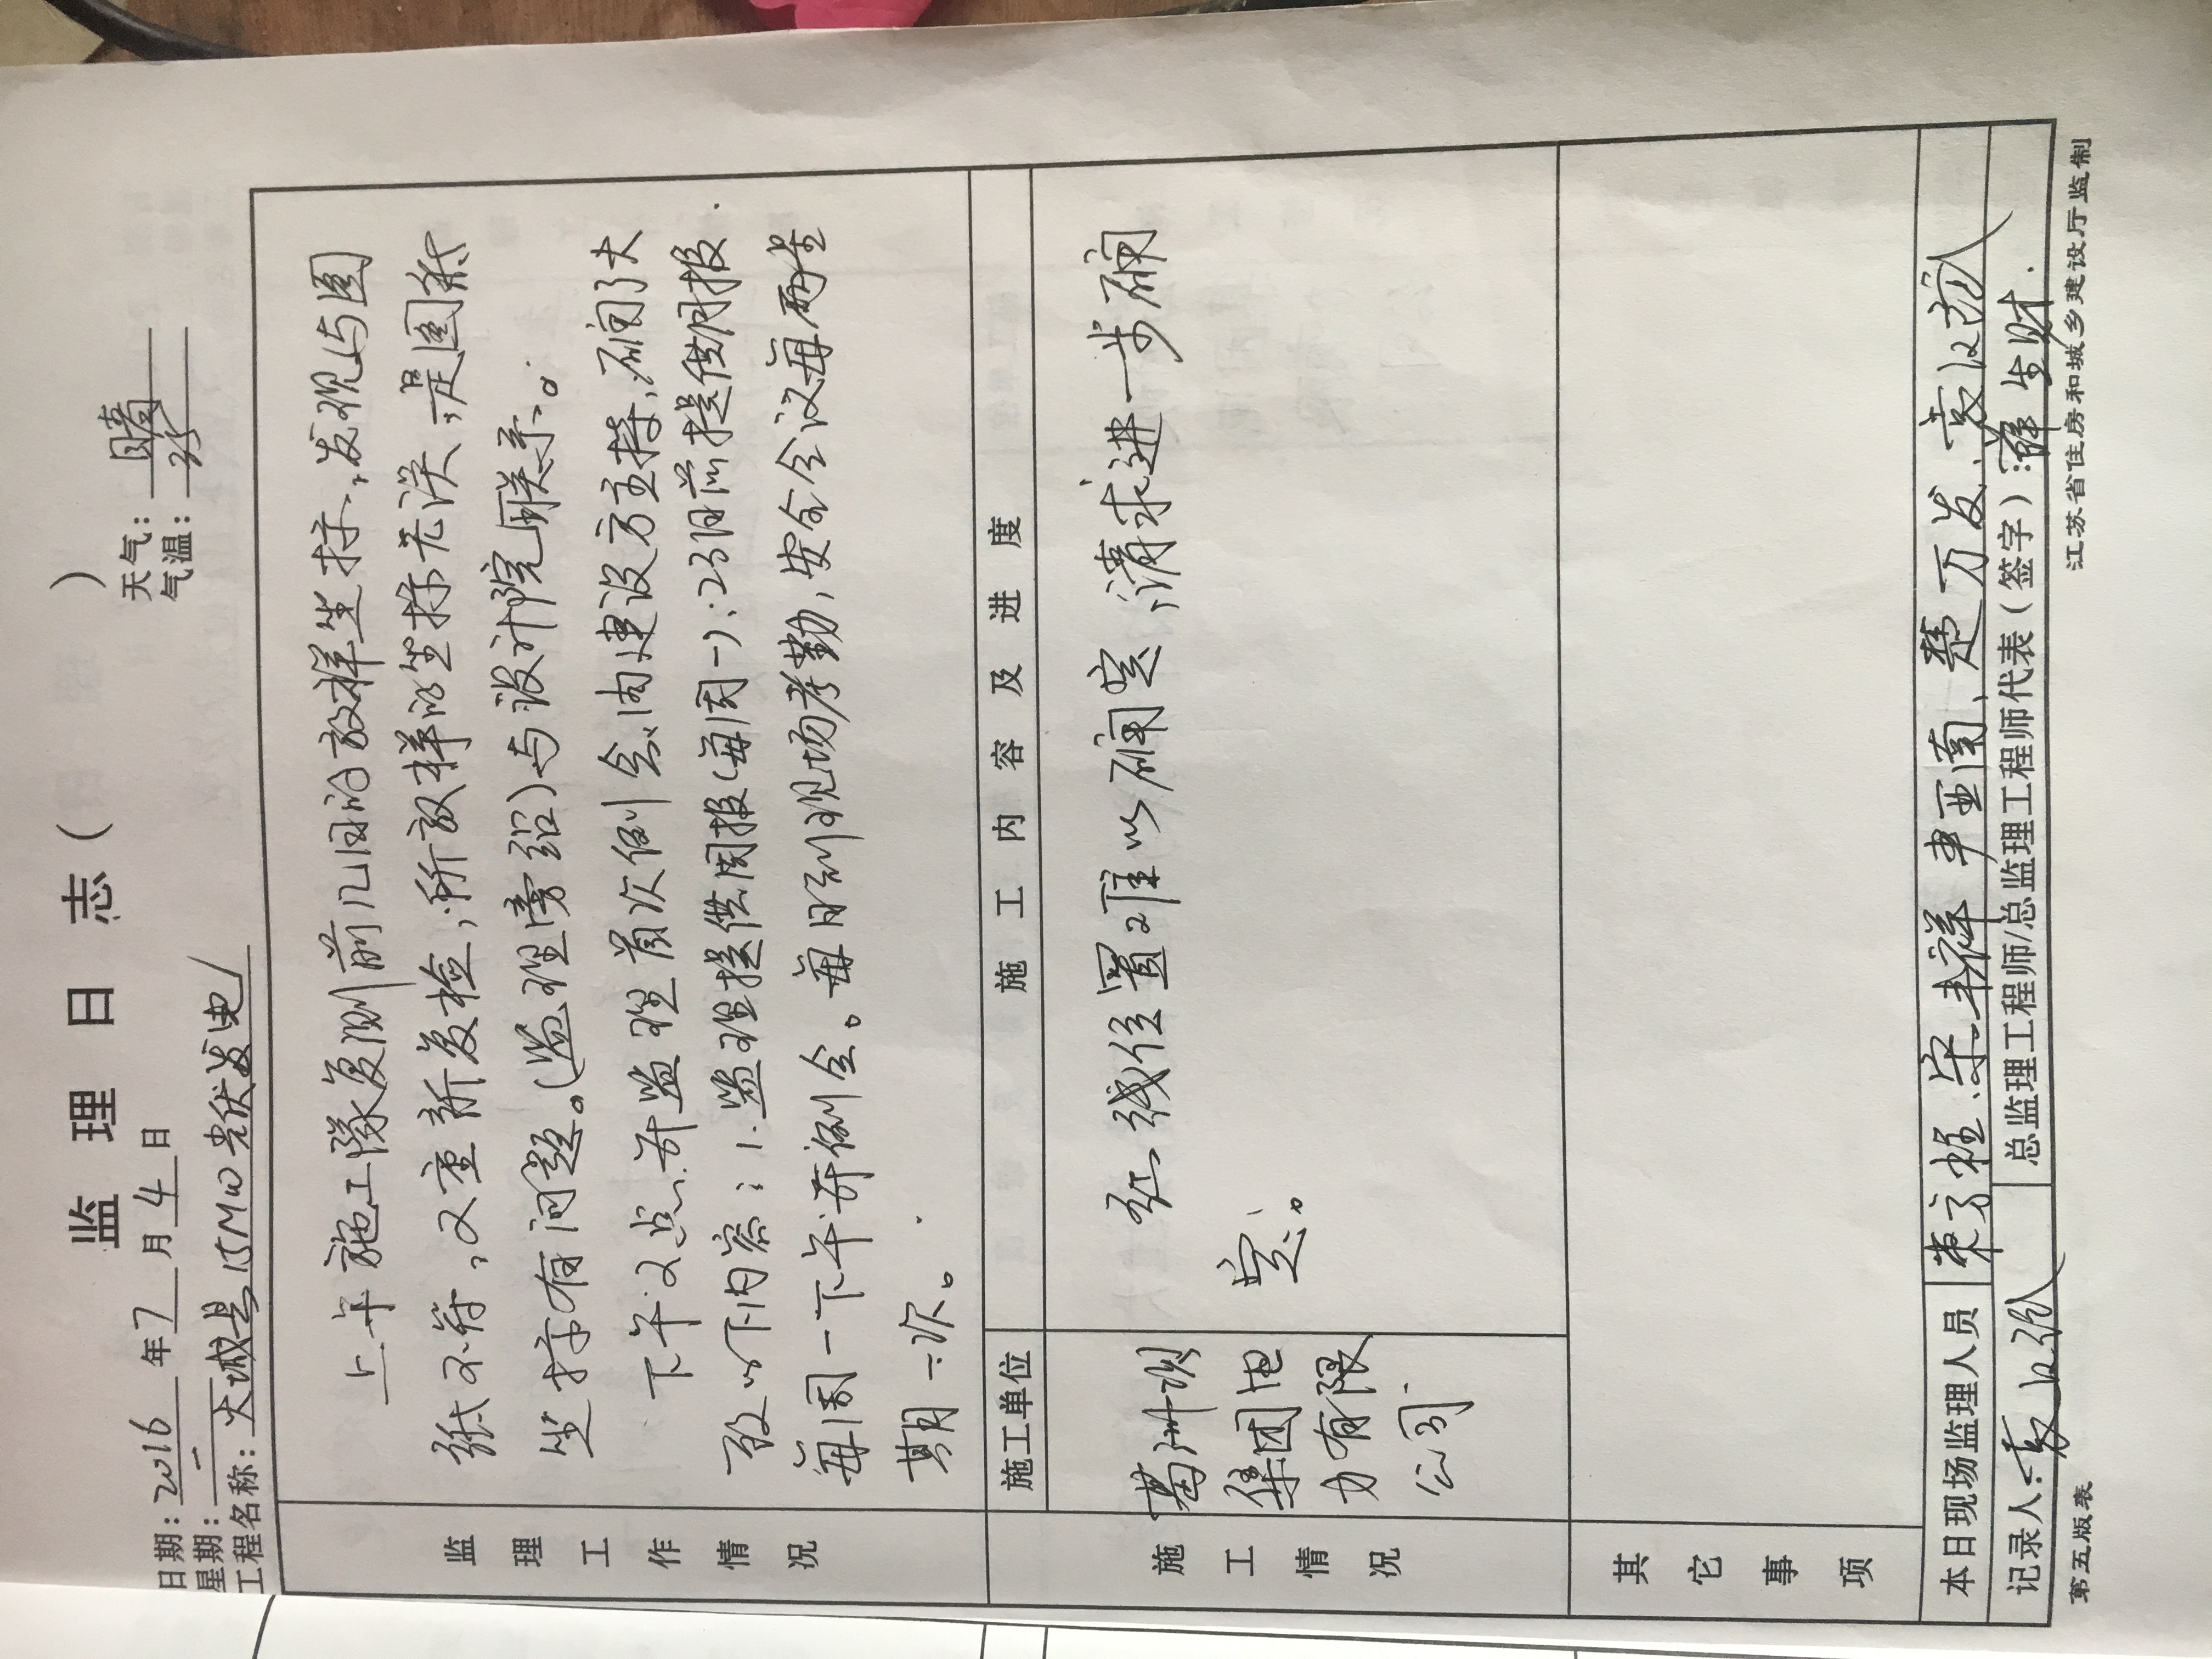 监 理 日 志 (    )
日期：2016 年 7 月 4 日
天气：晴
星期：一
气温：
工程名称：大城县15MW光伏发电
监理工作情况
上午施工队复测前几日的放样坐标，发现与图
纸不符，又重新复检，所放样的坐标无误，是图纸
坐标有问题。(监理旁绍)与设计院联系。
下午2点，开监理首次例会，由建设方主持，确定了大
致以下内容：1.监理提供周报(每周一)：23日前提供月报
每周一下午开例会。每日到现场考勤，安全会议每两星
期一次。
施工情况
施工单位
施 工 内 容 及 进 度
葛洲坝
集团电
力有限
公司
红线位置难以确定，请求进一步确
定。
其它事项
本日现场监理人员
宋祥 楚万发、袁汉
记录人：袁汉
总监理工程师/总监理工程师代表（签字）：薛生财
第五版表
江苏省住房和城乡建设厅监制